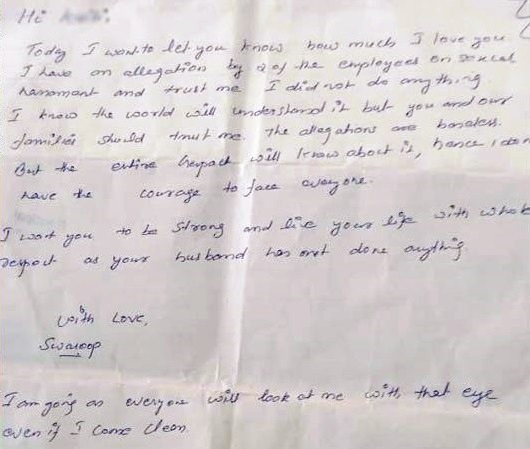 Hi
Today I want to let you know how much I love you
I have an allegation by 2 of the employees on sexual
harrasment and trust me I did not do anything
I know the world will understand it but you and our
families should trust me. The allegations are baseless.
But the entire Genpact will know about it, hence I don
have the courage to face everyone.
I want you to be strong and live your life with whole
respect as your husband has not done anything.
With Love,
Swaroop
I am going as everyone will look at me with that eye
even if I come clean